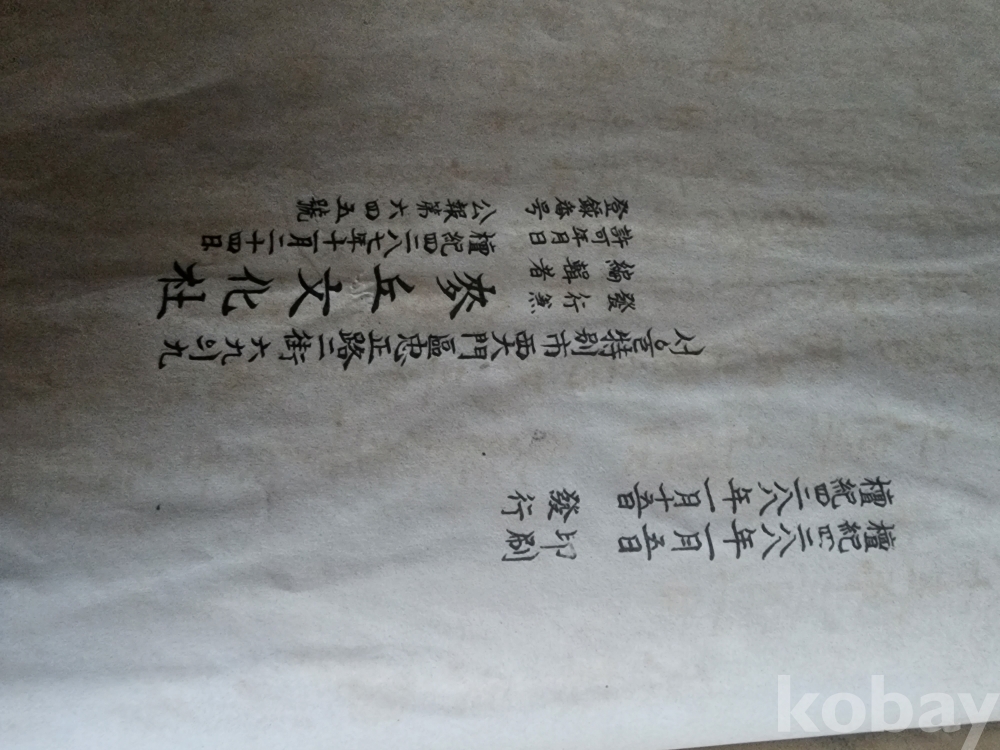 檀紀四二八八年一月五日 印刷
檀紀四二八八年一月十五日 發行
서울特別市西大門區忠正路二街六九의九
發行兼
編輯者 麥丘文化社
許可年月日 檀紀四二八七年十一月二十四日
登錄番号 公報第六四五號
kobay